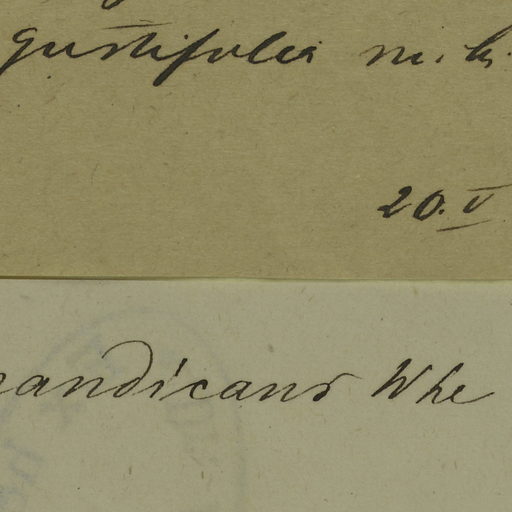 gustifolia m. b.
20. V
nandicans Whe